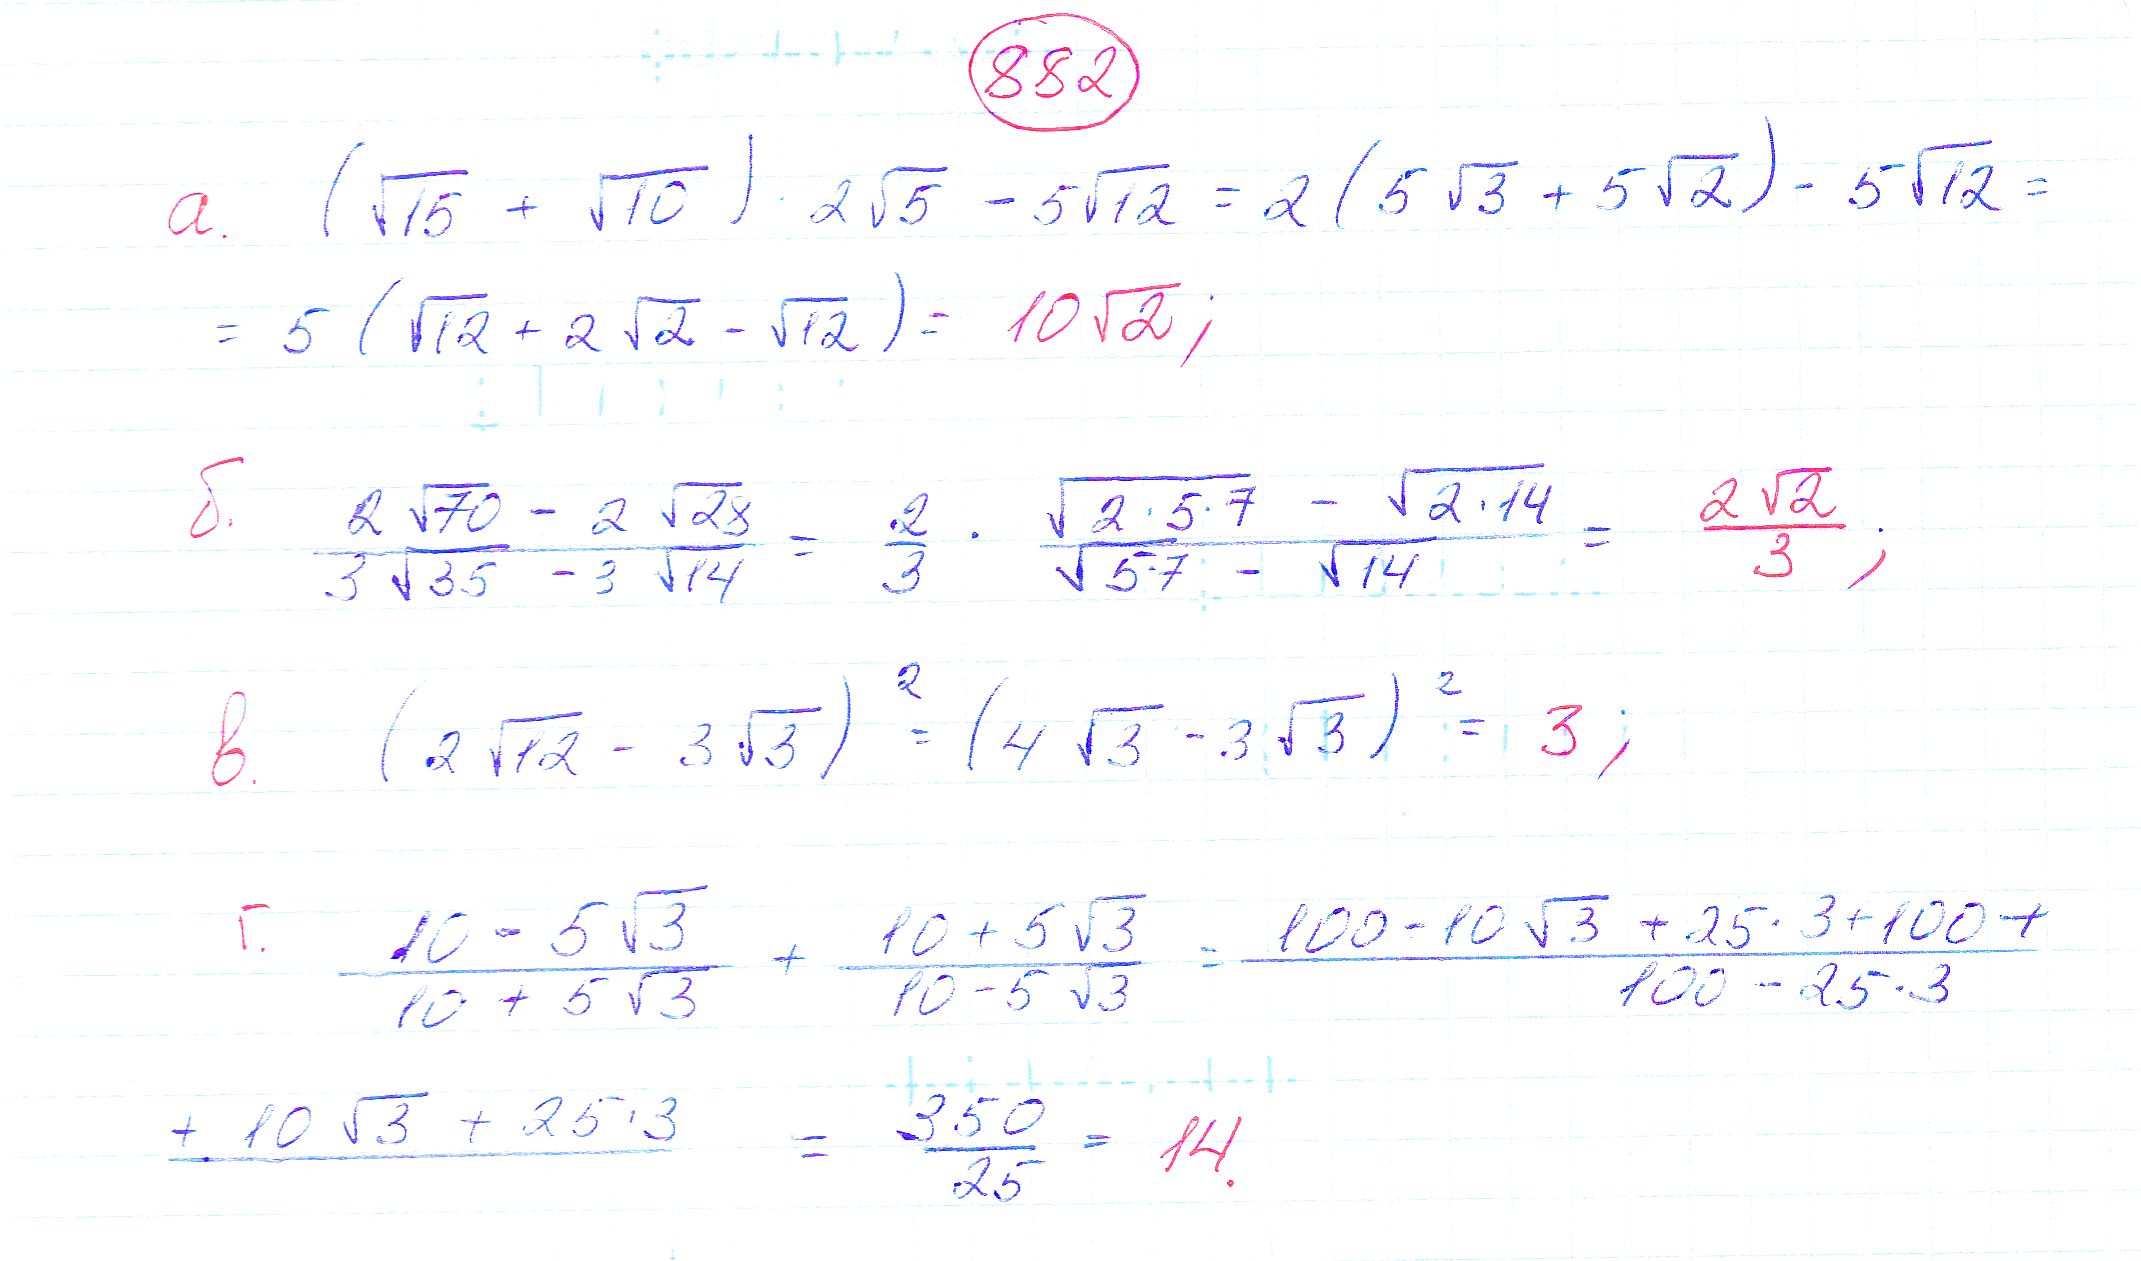 882
а. (√15 + √10) · 2√5 - 5√12 = 2(5√3 + 5√2) - 5√12 =
= 5(√12 + 2√2 - √12) = 10√2;
б. (2√70 - 2√28)/(3√35 - 3√14) = 2/3 · (√(2·5·7) - √(2·14))/(√(5·7) - √14) = (2√2)/3;
в. (2√12 - 3√3)² = (4√3 - 3√3)² = 3;
г. (10 - 5√3)/(10 + 5√3) + (10 + 5√3)/(10 - 5√3) = (100 - 10√3 + 25·3 + 100 +)/(100 - 25·3)
+ 10√3 + 25·3 = 350/25 = 14.